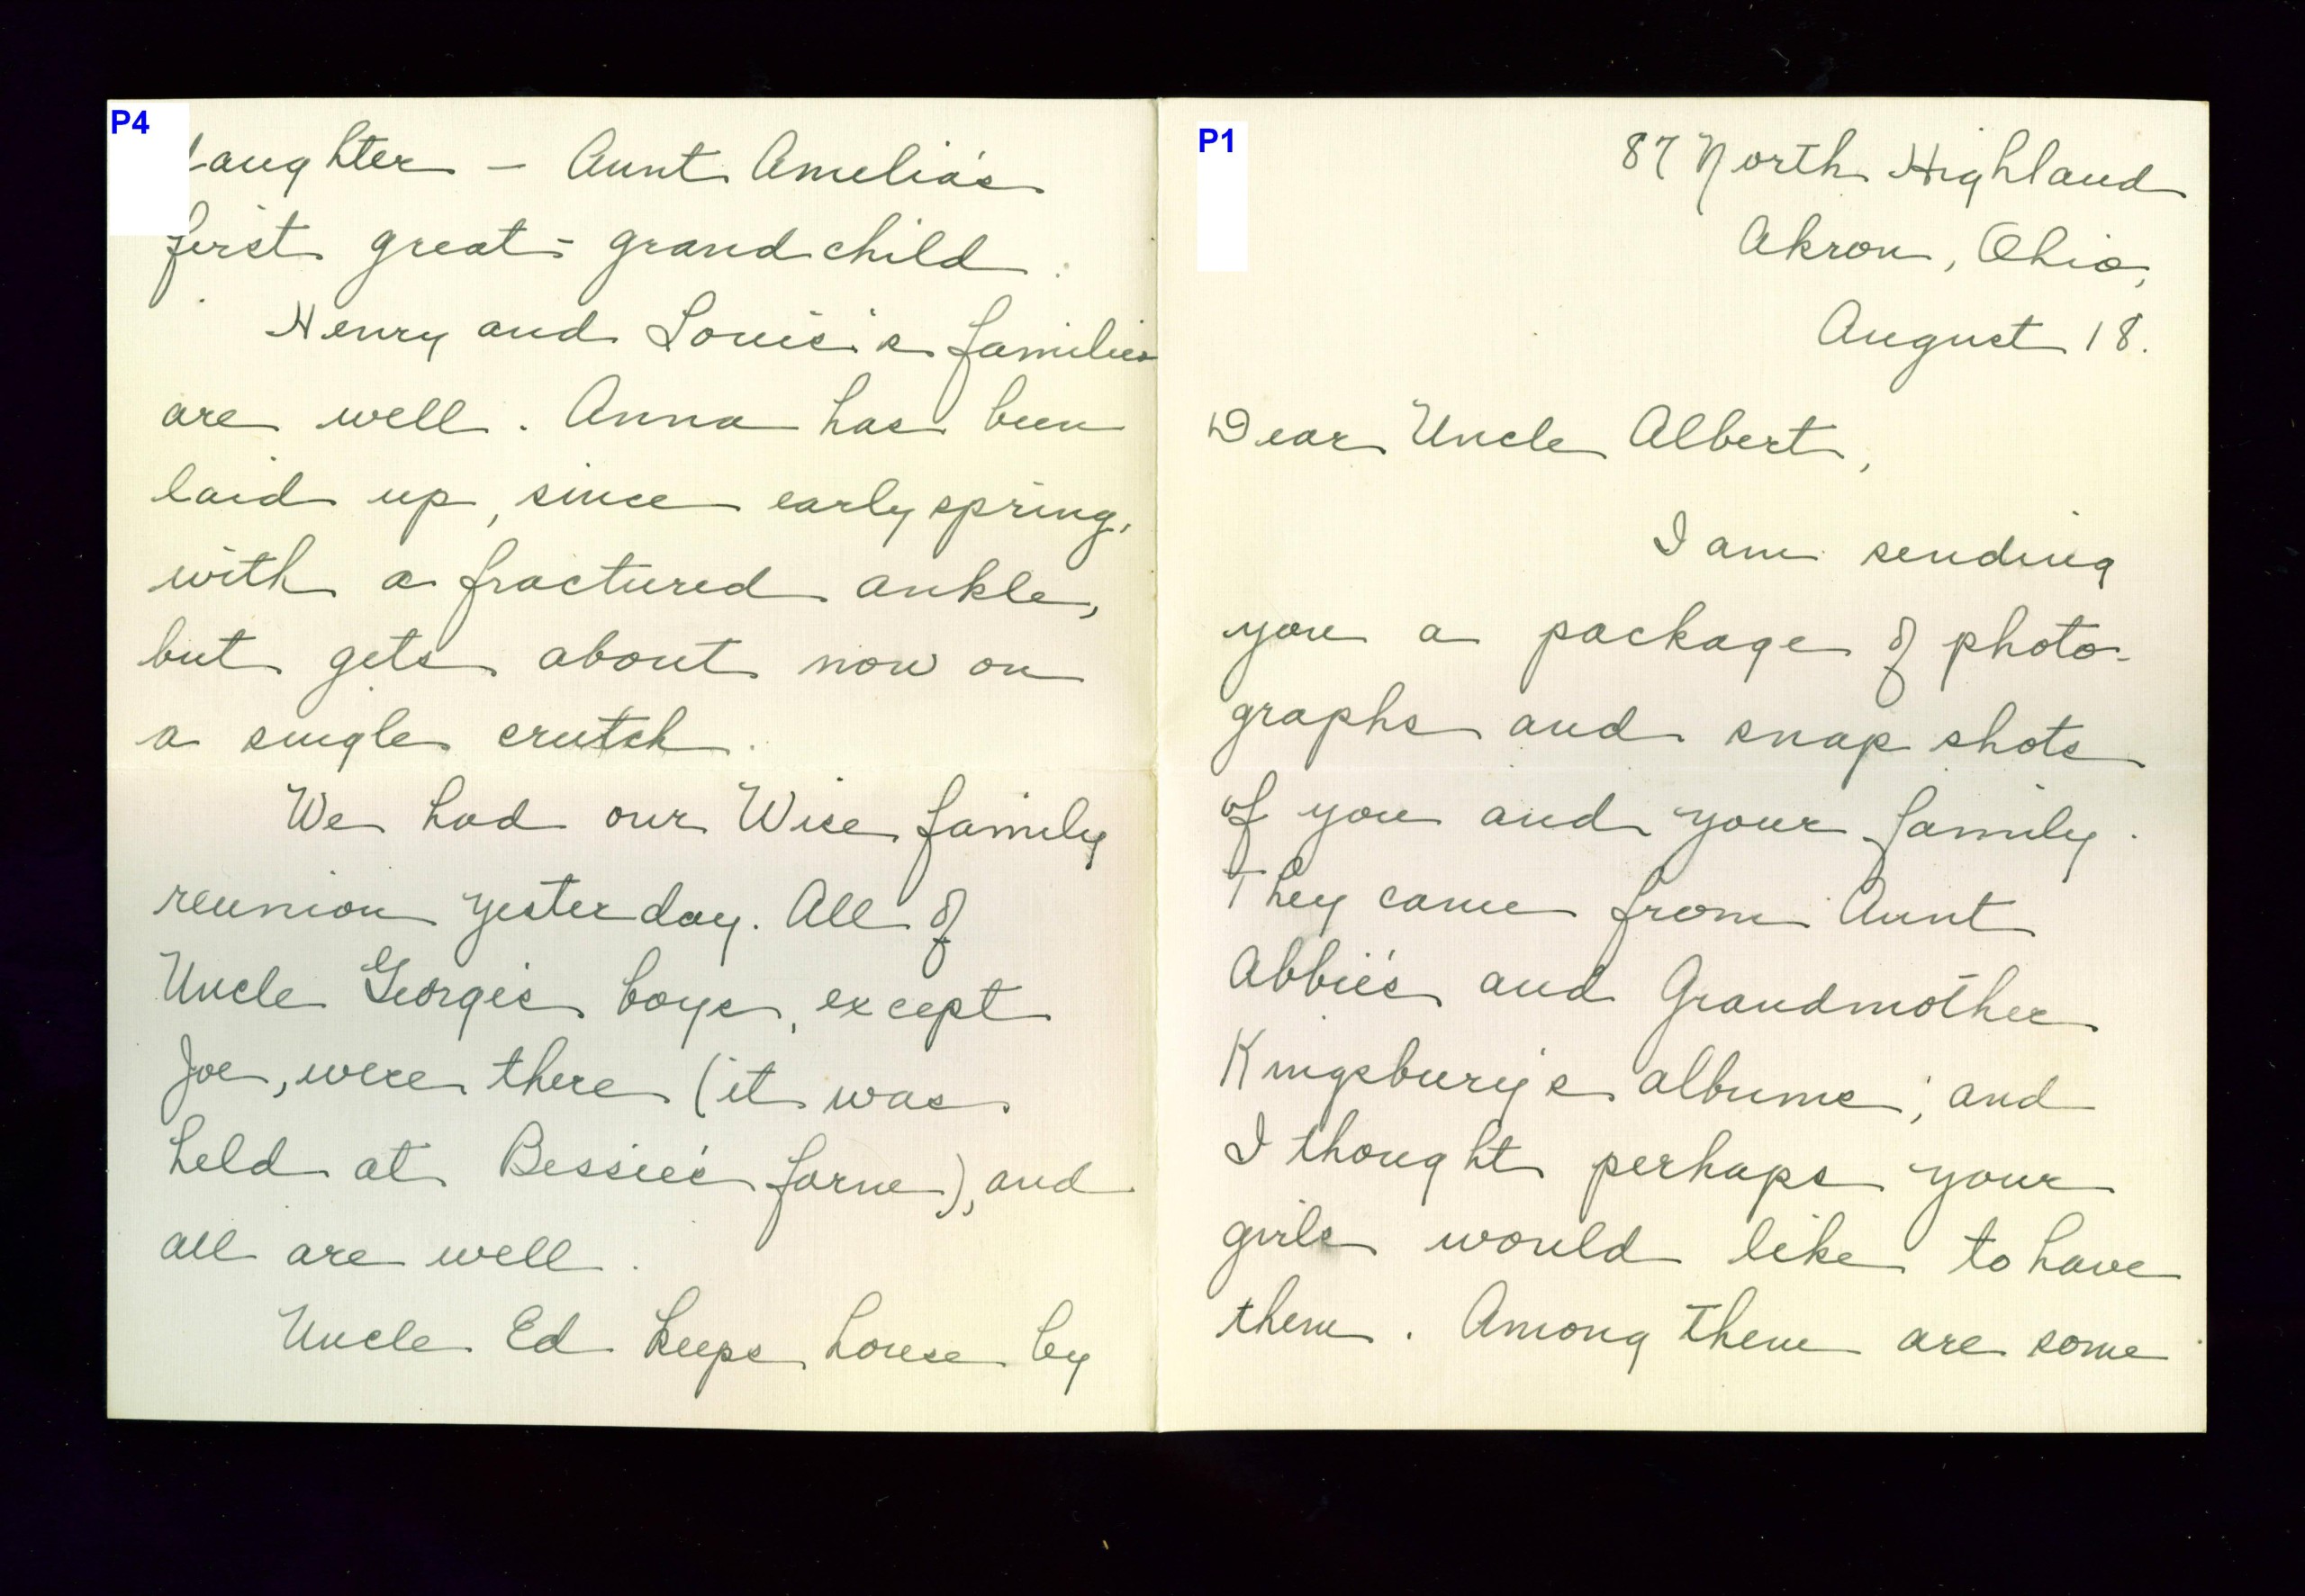 P4
daughter – Aunt Amelia's
first great-grandchild.
Henry and Louis's families
are well. Anna has been
laid up, since early spring,
with a fractured ankle,
but gets about now on
a single crutch.
We had our Wise family
reunion yesterday. All of
Uncle George's boys, except
Joe, were there (it was
held at Bessie's farm), and
all are well.
Uncle Ed keeps house by
P1
87 North Highland
Akron, Ohio,
August 18.
Dear Uncle Albert,
I am sending
you a package of photo-
graphs and snap shots
of you and your family.
They came from Aunt
Abbie's and Grandmother
Kingsbury's albums; and
I thought perhaps your
girls would like to have
them. Among them are some